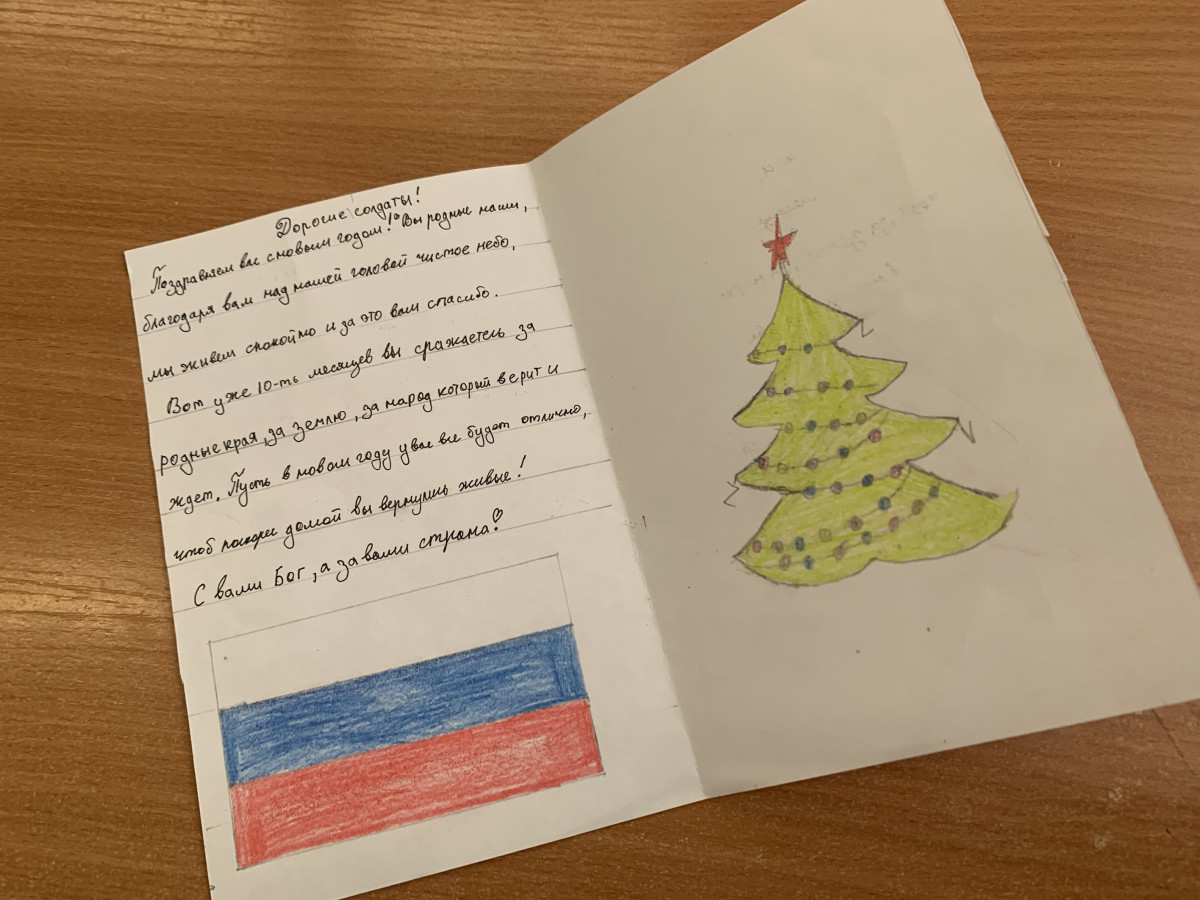 Дорогие солдаты!
Поздравляем вас с новым годом! Вы родные наши,
благодаря вам над нашей головой чистое небо,
мы живем спокойно и за это вам спасибо.
Вот уже 10-ть месяцев вы сражаетесь за
родные края, за землю, за народ который верит и
ждет. Пусть в новом году у вас все будет отлично,
чтоб поскорее домой вы вернулись живые!
С вами Бог, а за вами страна!